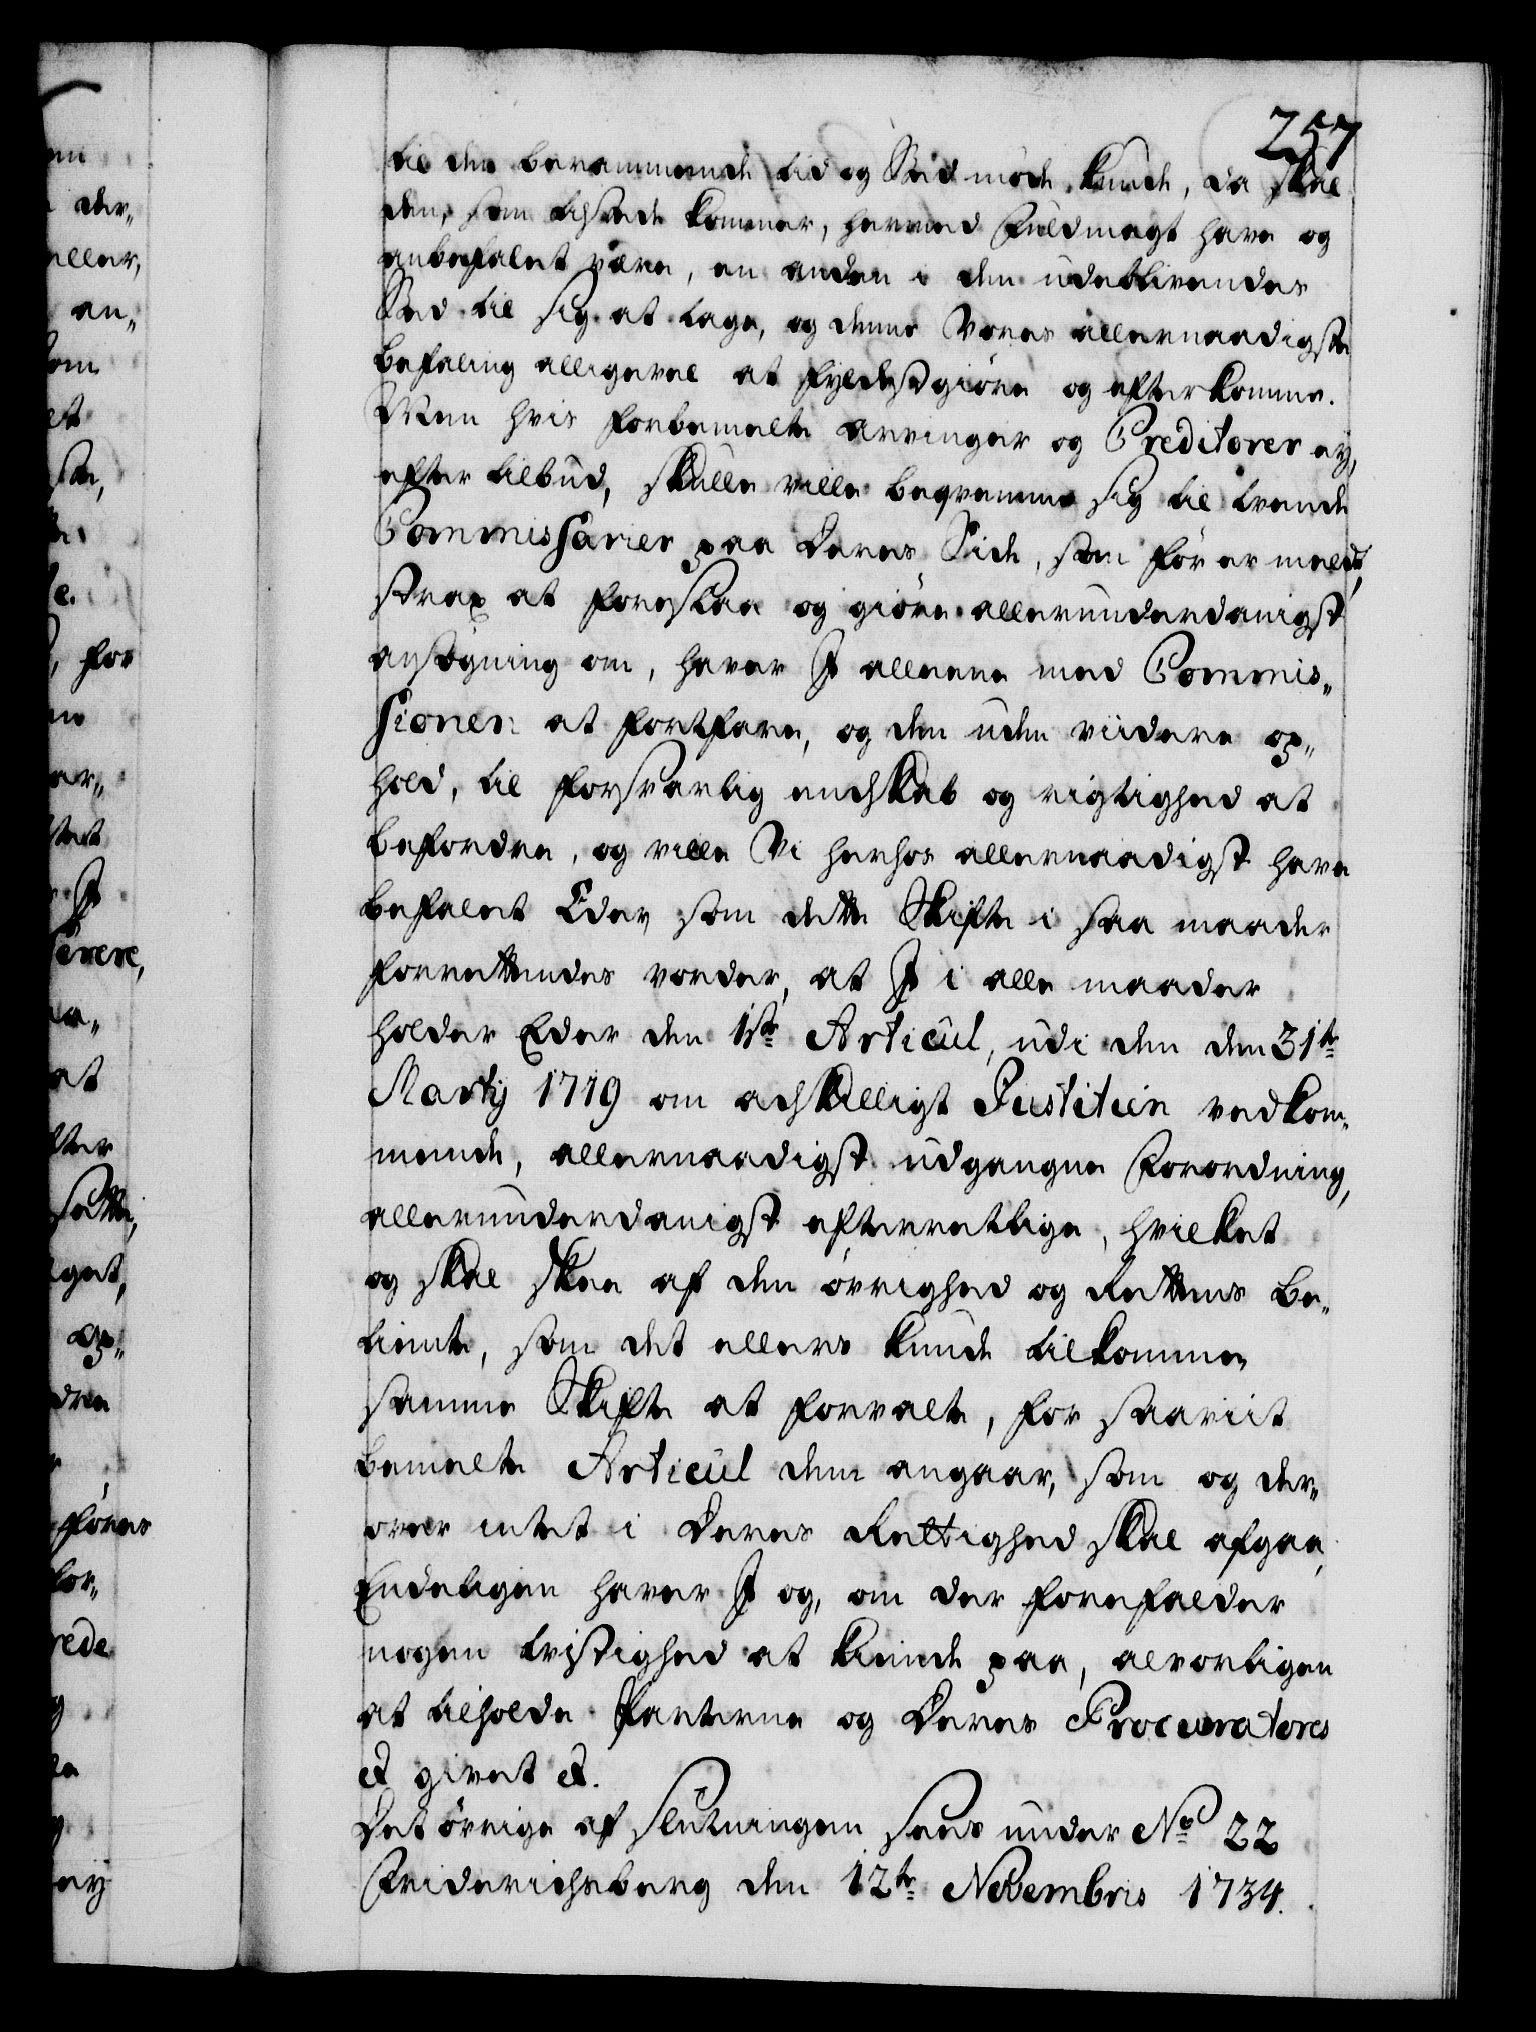 257
til den berammende tid og Sted möde kunde, da skal
den, som tilstede kommer, hermed Fuldmagt have og
anbefalet være, en anden i den udeblivendes
Sted til sig at tage, og denne Vores allernaadigste
befaling alligevel at fyldestgiöre og efterkomme.
Men hvis forbemelte arvinger og Creditorer ey,
efter tilbud, skulle ville beqvemme sig til tvende
Commissarier paa Deres Side, som för er meldt,
strax at foreslaa og giöre allerunderdanigst
ansögning om, haver I alleene med Commis„
sionen at fortfare, og den uden viidere op„
hold, til forsvarlig endskab og rigtighed at
befordre, og ville Vi herhos allernaadigst have
befalet Eder som dette Skifte i saa maader
forrettendes vorder, at I i alle maader
holder Eder den 1ste Articul, udi den dem 31te
Martij 1719 om adskilligt Justitien vedkom„
mende, allernaadigst udgangne Forordning,
allerunderdanigst efterrettlige, hvilket
og skal skee af den övrighed og Rettens be„
tiente, som det ellers kunde tilkomme
samme Skifte at forvalte, for saaviit
bemelte Articul dem angaar, som og der„
over intet i Deres Rettighed skal afgaa,
Endeligen haver I og, om der forefalder
nogen tvistighed at kiende paa, alvorligen
at tilholde Parterne og Deres Procuratores
et givet et.
Det övrige af Slutningen sees under No 22
Friderichsberg den 12te Novembris 1734.